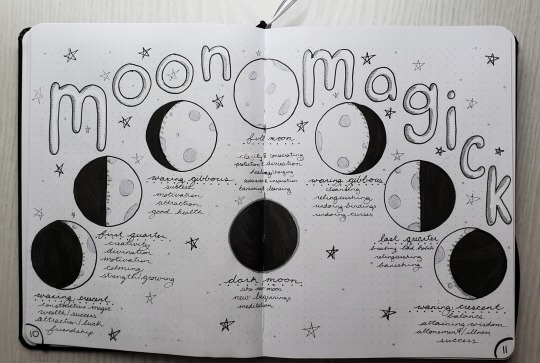 moon magick
full moon
clarity & consecrating
protection & divination
healing/charging
banishing/cleansing
waxing gibbous
success
motivation
attraction
good health
waning gibbous
cleansing
relinquishing
undoing bindings
undoing curses
first quarter
creativity
divination
motivation
calming
strength/growing
last quarter
breaking bad habits
relinquishing
banishing
dark moon
new beginnings
meditation
waxing crescent
constructive magic
wealth/success
attraction/luck
friendship
waning crescent
balance
attaining wisdom
atonement/illness
success
10
11